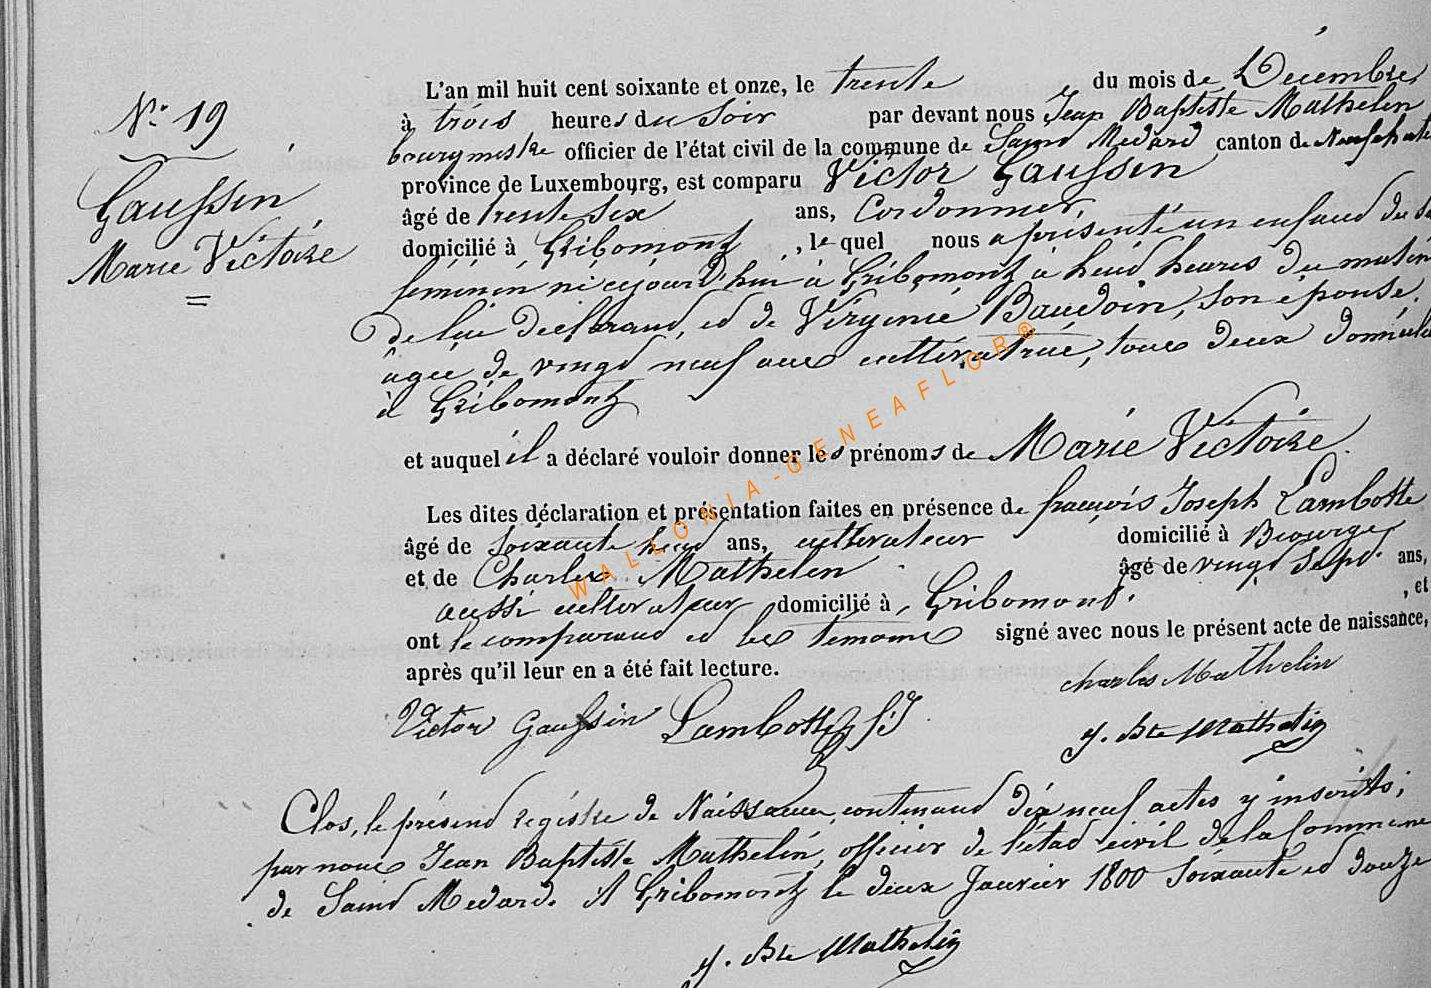 N° 19
Gaussin
Marie Victoire
L'an mil huit cent soixante et onze, le trente du mois de Décembre
à trois heures du soir par devant nous Jean Baptiste Mathelin
bourgmestre officier de l'état civil de la commune de Saint Médard canton de Neufchate
province de Luxembourg, est comparu Victor Gaussin
âgé de trente six ans, Cordonnier,
domicilié à Gribomont, lequel nous a présenté un enfant du se
féminin né cejourd'hui à Gribomont à huit heures du matin
de lui déclarant, et de Virginie Baudoin, son épouse,
âgée de vingt neuf ans cultivatrice, tous deux domicilié
à Gribomont
et auquel il a déclaré vouloir donner les prénoms de Marie Victoire.
Les dites déclaration et présentation faites en présence de françois Joseph Lambotte
âgé de soixante huit ans, cultivateur domicilié à Biourge
et de Charles Mathelin âgé de vingt sept ans,
aussi cultivateur domicilié à Gribomont, et
ont le comparant et les témoins signé avec nous le présent acte de naissance,
après qu'il leur en a été fait lecture.
Charles Mathelin
Victor Gaussin Lambotte f:J
J. Bte Mathelin
Clos, le présent registre de Naissance, contenant dix neuf actes y inscrits,
par nous Jean Baptiste Mathelin, officier de l'état civil de la Commune
de Saint Médard. A Gribomont le deux Janvier 1800 soixante et douze
J. Bte Mathelin
WALLONIA-GENEAFLOR®